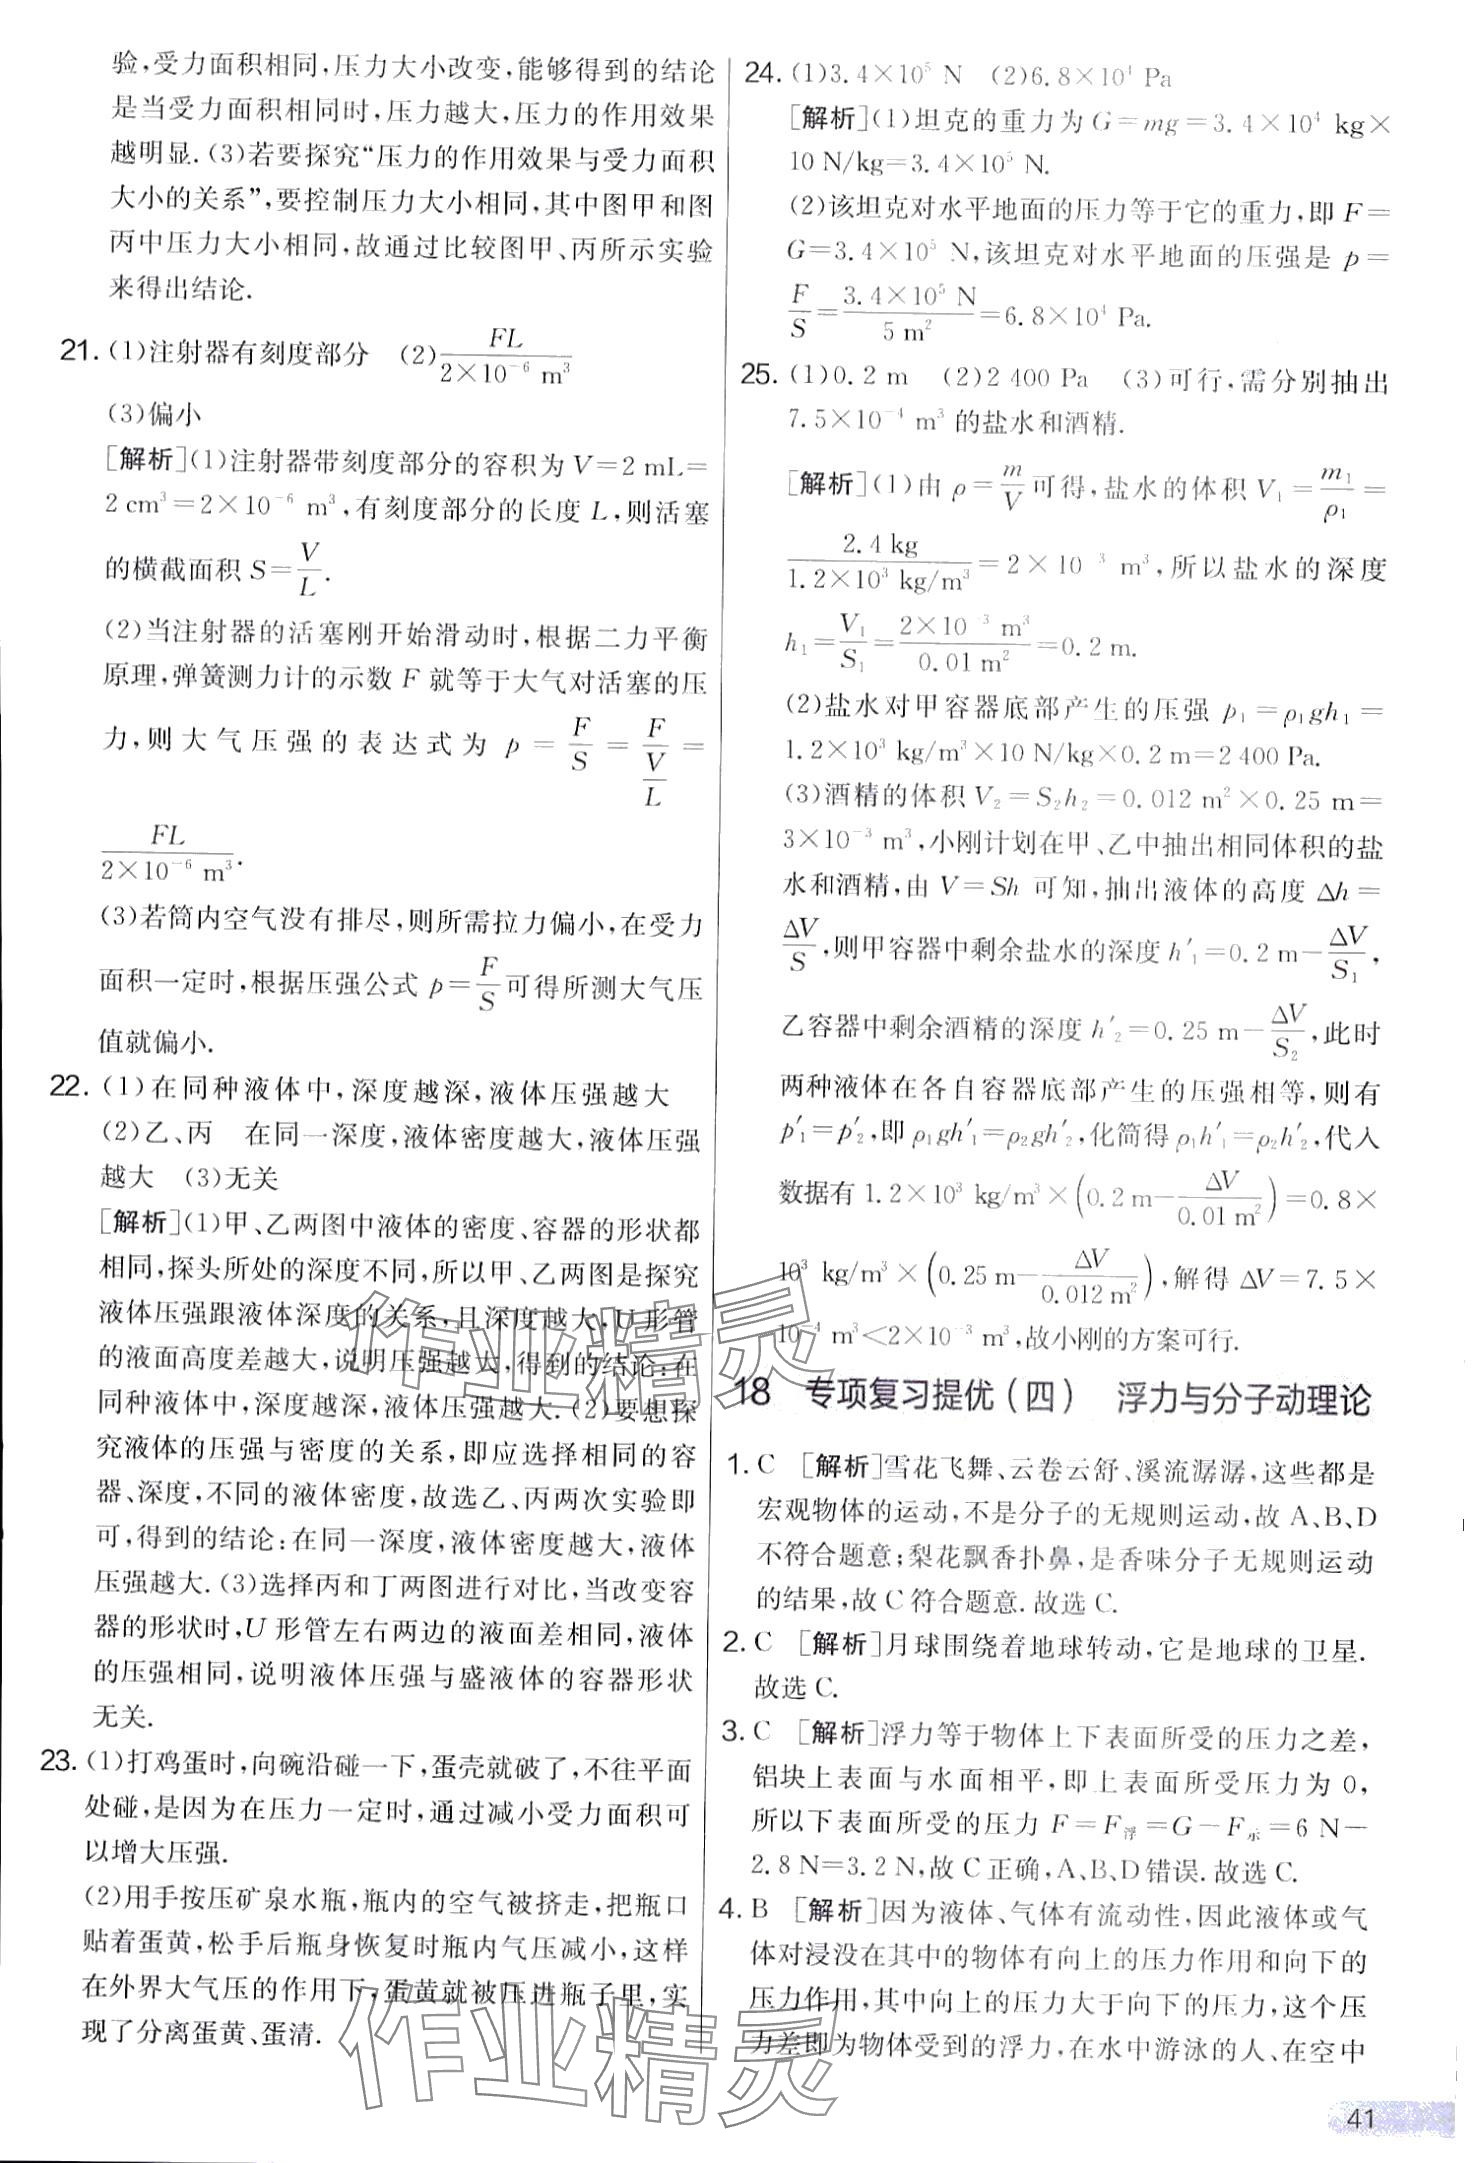 验,受力面积相同,压力大小改变,能够得到的结论
是当受力面积相同时,压力越大,压力的作用效果
越明显.(3)若要探究“压力的作用效果与受力面积
大小的关系”,要控制压力大小相同,其中图甲和图
丙中压力大小相同,故通过比较图甲、丙所示实验
来得出结论.
21. (1)注射器有刻度部分 (2)FL/(2×10⁻⁶ m³)
(3)偏小
[解析](1)注射器带刻度部分的容积为 V=2 mL=
2 cm³=2×10⁻⁶ m³,有刻度部分的长度 L,则活塞
的横截面积 S=V/L.
(2)当注射器的活塞刚开始滑动时,根据二力平衡
原理,弹簧测力计的示数 F 就等于大气对活塞的压
力,则大气压强的表达式为 p=F/S=F/(V/L)=
FL/(2×10⁻⁶ m³).
(3)若筒内空气没有排尽,则所需拉力偏小,在受力
面积一定时,根据压强公式 p=F/S可得所测大气压
值就偏小.
22. (1)在同种液体中,深度越深,液体压强越大
(2)乙、丙 在同一深度,液体密度越大,液体压强
越大 (3)无关
[解析](1)甲、乙两图中液体的密度、容器的形状都
相同,探头所处的深度不同,所以甲、乙两图是探究
液体压强跟液体深度的关系,且深度越大,U形管
的液面高度差越大,说明压强越大,得到的结论:在
同种液体中,液体越深,液体压强越大.(2)要想探
究液体的压强与密度的关系,即应选择相同的容
器、深度,不同的液体密度,故选乙、丙两次实验即
可,得到的结论:在同一深度,液体密度越大,液体
压强越大.(3)选择丙和丁两图进行对比,当改变容
器的形状时,U形管左右两边的液面差相同,液体
的压强相同,说明液体压强与盛液体的容器形状
无关.
23. (1)打鸡蛋时,向碗沿碰一下,蛋壳就破了,不往平面
处碰,是因为在压力一定时,通过减小受力面积可
以增大压强.
(2)用手按压矿泉水瓶,瓶内的空气被挤走,把瓶口
贴着蛋黄,松手后瓶身恢复时瓶内气压减小,这样
在外界大气压的作用下,蛋黄就被压进瓶子里,实
现了分离蛋黄、蛋清.
24. (1)3.4×10⁵ N (2)6.8×10⁴ Pa
[解析](1)坦克的重力为 G=mg=3.4×10⁴ kg×
10 N/kg=3.4×10⁵ N.
(2)该坦克对水平地面的压力等于它的重力,即 F=
G=3.4×10⁵ N,该坦克对水平地面的压强是 p=
F/S=3.4×10⁵ N/5 m²=6.8×10⁴ Pa.
25. (1)0.2 m (2)2 400 Pa (3)可行,需分别抽出
7.5×10⁻⁴ m³ 的盐水和酒精.
[解析](1)由 ρ=m/V可得,盐水的体积 V₁=m₁/ρ₁=
2.4 kg/(1.2×10³ kg/m³)=2×10⁻³ m³,所以盐水的深度
h₁=V₁/S₁=2×10⁻³ m³/0.01 m²=0.2 m.
(2)盐水对甲容器底部产生的压强 p₁=ρ₁gh₁=
1.2×10³ kg/m³×10 N/kg×0.2 m=2 400 Pa.
(3)酒精的体积 V₂=S₂h₂=0.012 m²×0.25 m=
3×10⁻³ m³,小刚计划在甲、乙中抽出相同体积的盐
水和酒精,由 V=Sh 可知,抽出液体的高度 Δh=
ΔV/S,则甲容器中剩余盐水的深度 h′₁=0.2 m−ΔV/S₁,
乙容器中剩余酒精的深度 h′₂=0.25 m−ΔV/S₂,此时
两种液体在各自容器底部产生的压强相等,则有
p′₁=p′₂,即 ρ₁gh′₁=ρ₂gh′₂,化简得 ρ₁h′₁=ρ₂h′₂,代入
数据有 1.2×10³ kg/m³×(0.2 m−ΔV/0.01 m²)=0.8×
10³ kg/m³×(0.25 m−ΔV/0.012 m²),解得 ΔV=7.5×
10⁻⁴ m³<2×10⁻³ m³,故小刚的方案可行.
18 专项复习提优(四) 浮力与分子动理论
1. C [解析]雪花飞舞、云卷云舒、溪流潺潺,这些都是
宏观物体的运动,不是分子的无规则运动,故 A、B、D
不符合题意;梨花飘香扑鼻,是香味分子无规则运动
的结果,故 C 符合题意.故选 C.
2. C [解析]月球围绕着地球转动,它是地球的卫星.
故选 C.
3. C [解析]浮力等于物体上下表面所受的压力之差,
铝块上表面与水面相平,即上表面所受压力为 0,
所以下表面所受的压力 F=F浮=G−F示=6 N−
2.8 N=3.2 N,故 C 正确,A、B、D 错误.故选 C.
4. B [解析]因为液体、气体有流动性,因此液体或气
体对浸没在其中的物体有向上的压力作用和向下的
压力作用,其中向上的压力大于向下的压力,这个压
力差即为物体受到的浮力,在水中游泳的人、在空中
41
作业精灵
作业精灵